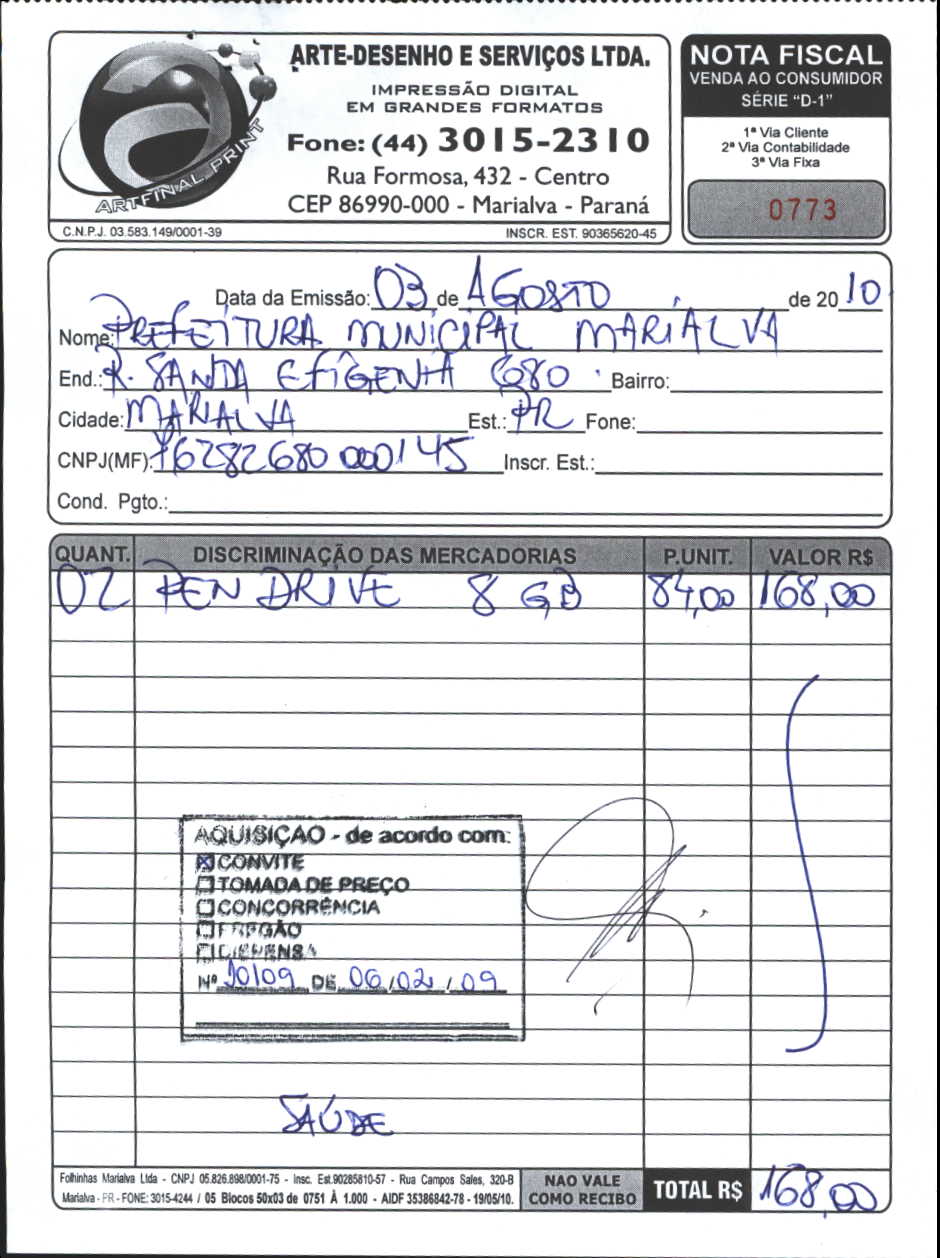 ARTE-DESENHO E SERVIÇOS LTDA.
IMPRESSÃO DIGITAL
EM GRANDES FORMATOS
Fone: (44) 3015-2310
Rua Formosa, 432 - Centro
CEP 86990-000 - Marialva - Paraná
ARTFINAL PRINT
C.N.P.J. 03.583.149/0001-39 INSCR. EST. 90365620-45
NOTA FISCAL
VENDA AO CONSUMIDOR
SÉRIE "D-1"
1ª Via Cliente
2ª Via Contabilidade
3ª Via Fixa
0773
Data da Emissão: 03 de AGOSTO de 20 10
Nome: PREFEITURA MUNICIPAL MARIALVA
End.: R. SANTA EFIGENIA 680 Bairro:
Cidade: MARIALVA Est.: PR Fone:
CNPJ(MF): 76282680 0001 45 Inscr. Est.:
Cond. Pgto.:
QUANT. DISCRIMINAÇÃO DAS MERCADORIAS P.UNIT. VALOR R$
02 PEN DRIVE 8 GB 84,00 168,00
AQUISIÇAO - de acordo com:
CONVITE
TOMADA DE PREÇO
CONCORRÊNCIA
PREGÃO
DISPENSA
Nº 10109 DE 06/02/09
SAÚDE
Folhinhas Marialva Ltda - CNPJ 05.826.898/0001-75 - Insc. Est.90285810-57 - Rua Campos Sales, 320-B
Marialva - PR - FONE: 3015-4244 / 05 Blocos 50x03 de 0751 À 1.000 - AIDF 35386842-78 - 19/05/10.
NAO VALE
COMO RECIBO
TOTAL R$ 168,00